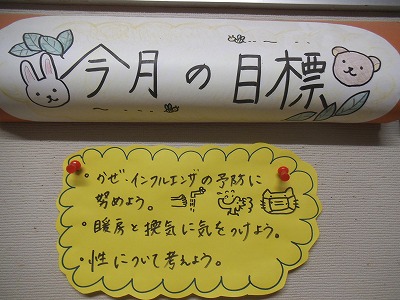 今月の目標
・かぜ・インフルエンザの予防に
努めよう。
・暖房と換気に気をつけよう。
・性について考えよう。